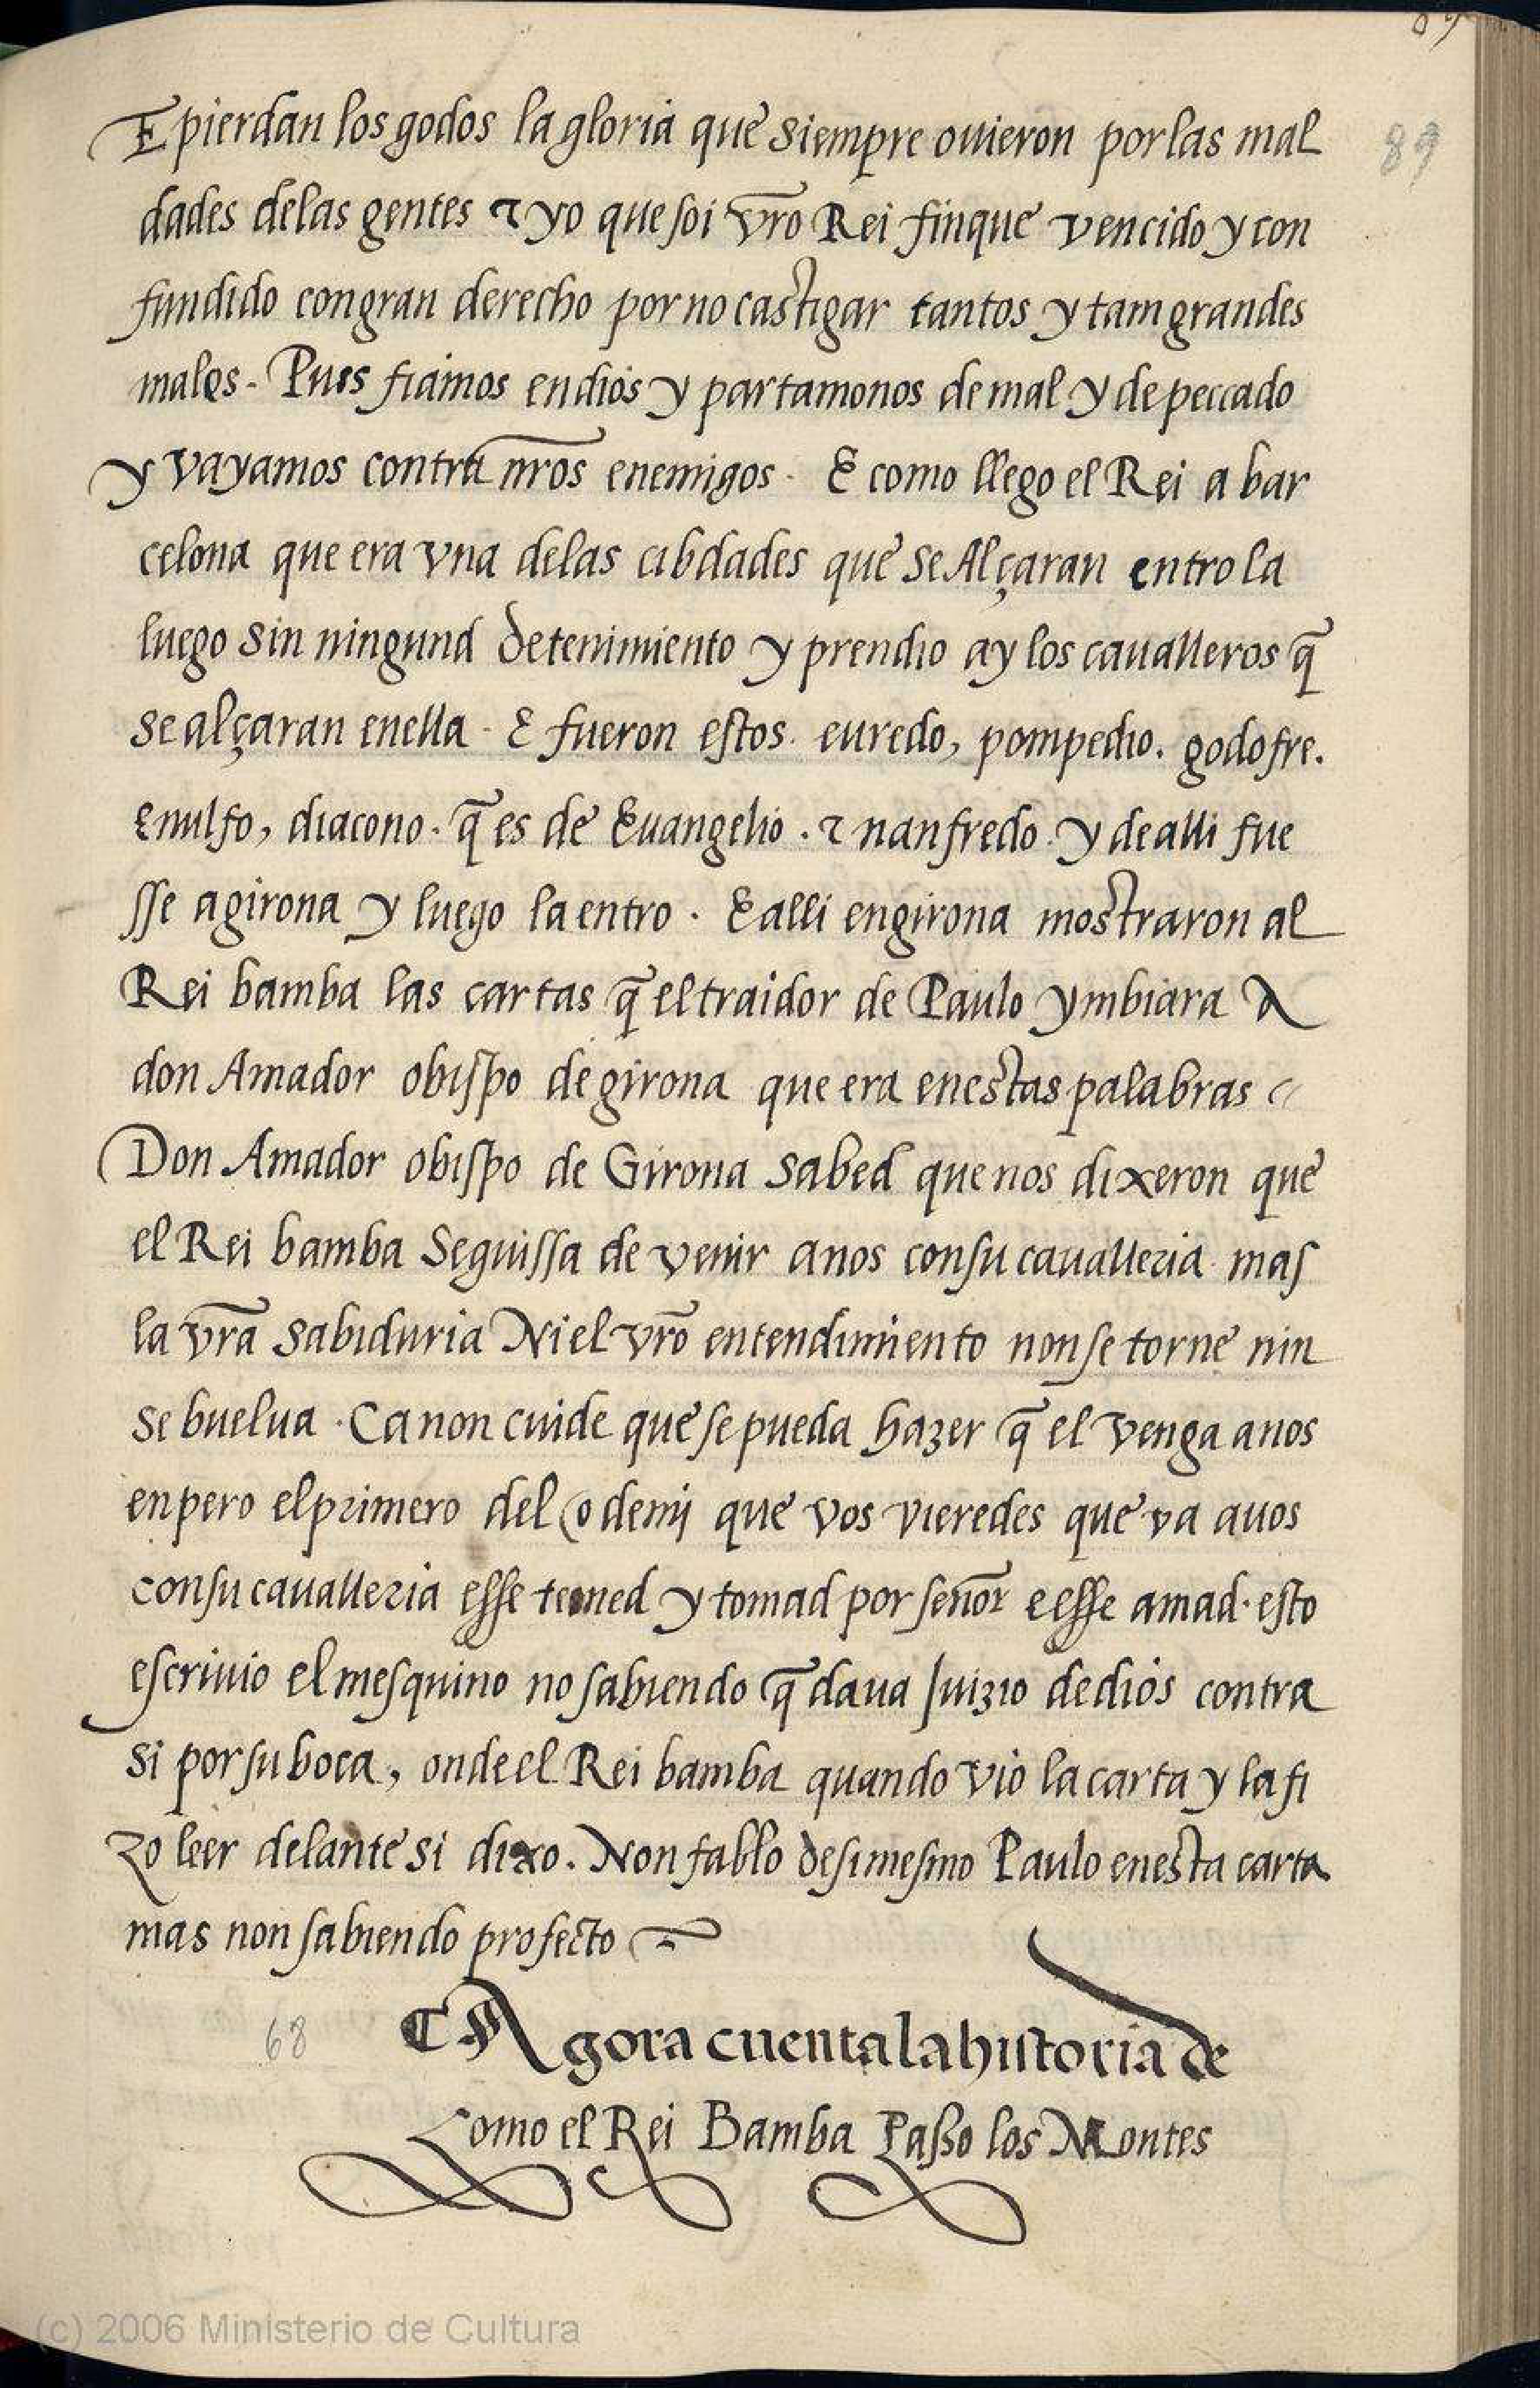 89
E pierdan los godos la gloria que siempre ouieron por las mal
dades delas gentes ⁊ yo que soi vr̃o Rei finque vencido y con
fundido con gran derecho por no castigar tantos y tam grandes
males - Pues fiamos en dios y partamonos de mal y de peccado
y vayamos contra nr̃os enemigos - E como llego el Rei a bar
celona que era vna delas cibdades que se Alçaran entro la
luego sin ningund detenimiento y prendio ay los caualleros q̃
se alçaran enella - E fueron estos. euredo, pompedio. godofre.
enulfo, diacono. q̃ es de Euangelio. ⁊ nanfredo. y de alli fue
sse a girona y luego la entro. E alli en girona mostraron al
Rei bamba las cartas q̃ el traidor de Paulo ymbiara A
don Amador obispo de girona que era en estas palabras
Don Amador obispo de Girona sabed que nos dixeron que
el Rei bamba Seguissa de venir a nos con su caualleria mas
la vr̃a sabiduria Ni el vr̃o entendimiento non se torne nin
se buelua. Ca non cuide que se pueda hazer q̃ el venga a nos
enpero el primero del o de mj que vos vieredes que va a uos
con su caualleria esse temed y tomad por señor e esse amad. esto
escriuio el mesquino no sabiendo q̃ daua Juizio de dios contra
si por su boca, onde el Rei bamba quando vio la carta y la fi
zo leer delante si dixo. Non fablo de si mesmo Paulo en esta carta
mas non sabiendo profecto
68
Agora cuenta la historia de
Como el Rei Bamba Passo los Montes
(c) 2006 Ministerio de Cultura